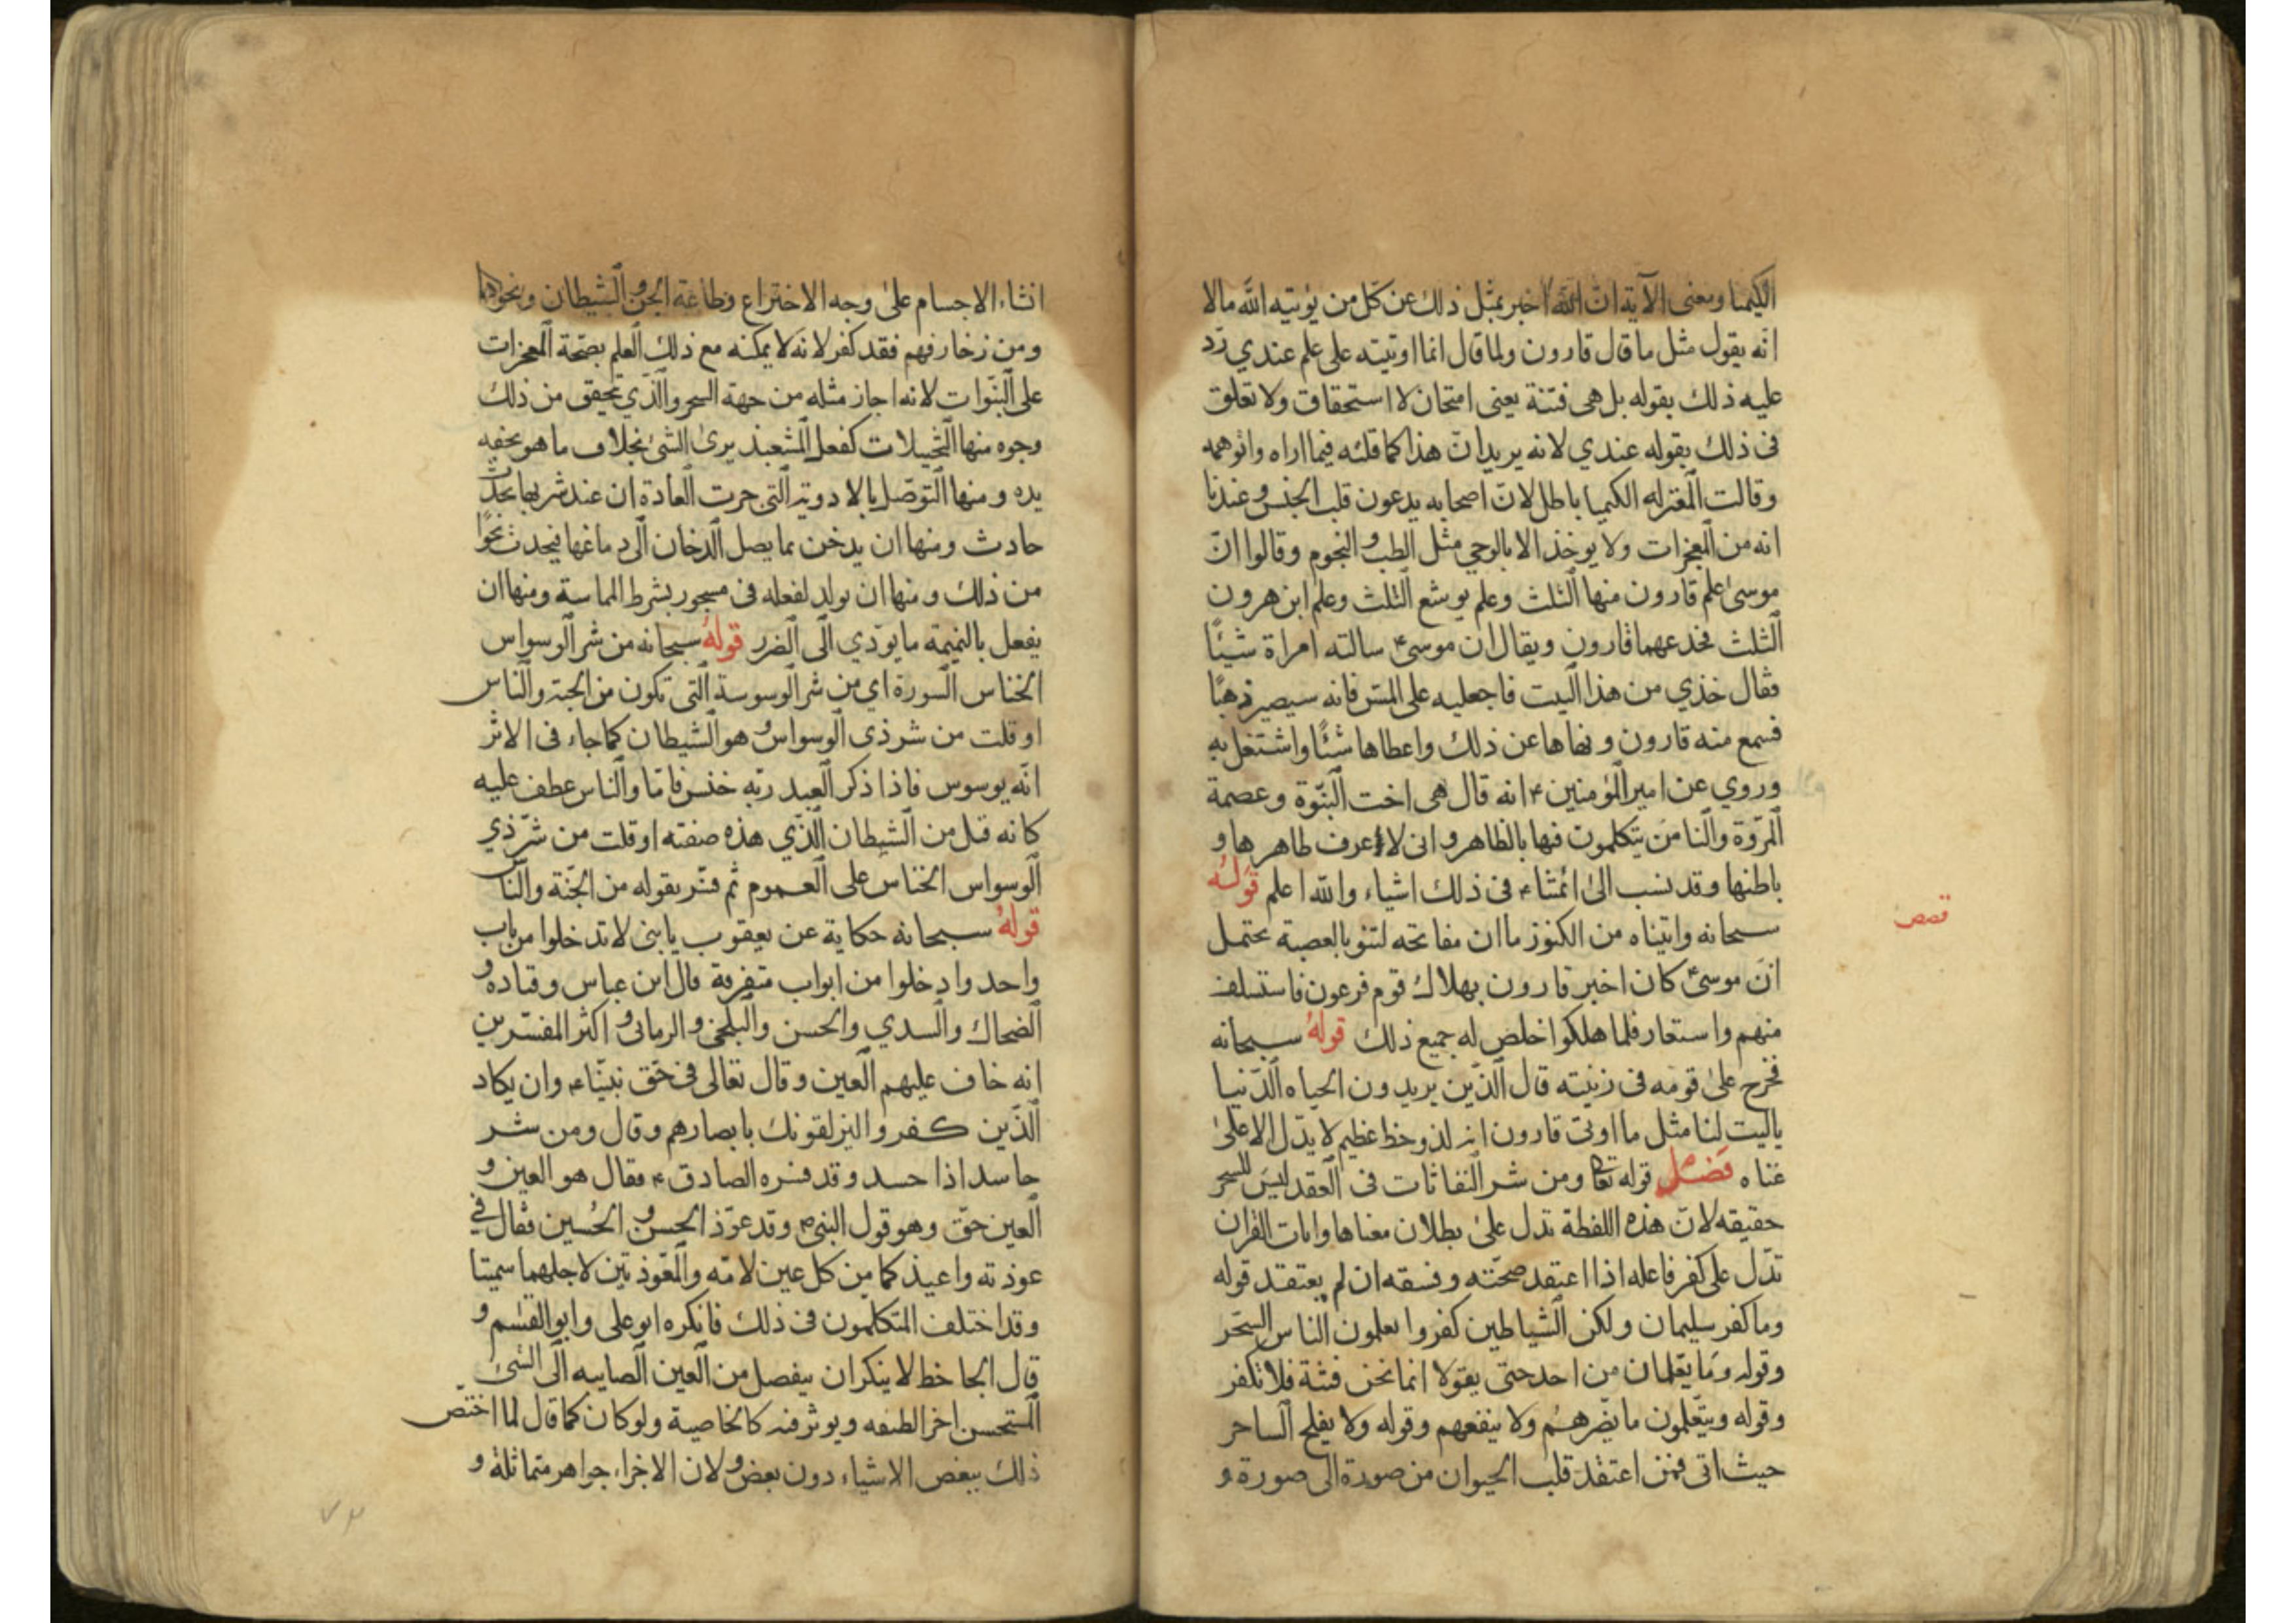 الكيميا ومعنى الآية ان الله اخبر بمثل ذلك عن كل من يؤتيه الله مالا
انه يقول مثل ما قال قارون ولما قال انما اوتيته على علم عندي رد
عليه ذلك بقوله بل هى فتنة يعنى امتحان لا استحقاق ولا تعلق
فى ذلك بقوله عندي لانه يريد ان هذا كما قلته فيما اراه واتوهمه
وقالت المعتزله الكيميا باطل لان اصحابه يدعون قلب الجنس وعندنا
انه من المعجزات ولا يوخذ الا بالوحي مثل الطب والنجوم وقالوا ان
موسى علم قارون منها الثلث وعلم يوشع الثلث وعلم ابن هرون
الثلث فخدعهما قارون ويقال ان موسى ع سالته امراة شيئا
فقال خذي من هذا البيت فاجعليه على المس فانه سيصير ذهبا
فسمع منه قارون ونهاها عن ذلك واعطاها شئا واشتغل به
وروي عن امير المؤمنين ع انه قال هى اخت النبوة وعصمة
المروة والناس يتكلمون فيها بالظاهر وانى لاعرف ظاهرها و
باطنها وقد نسب الى ائمتنا ع فى ذلك اشياء والله اعلم قوله
قصص
سبحانه واتيناه من الكنوز ما ان مفاتحه لتنو بالعصبة يحتمل
ان موسى ع كان اخبر قارون بهلاك قوم فرعون فاستسلف
منهم واستعار فلما هلكوا خلص له جميع ذلك قوله سبحانه
فخرج على قومه فى زينته قال الذين يريدون الحياه الدنيا
ياليت لنا مثل ما اوتى قارون انه لذو حظ عظيم لا يدل الا على
غناه فصل قوله تعا ومن شر النفاثات فى العقد ليس للسحر
حقيقه لان هذه اللفظة تدل على بطلان معناها وايات القران
تدل على كفر فاعله اذا اعتقد صحته وفسقه ان لم يعتقد قوله
وما كفر سليمان ولكن الشياطين كفروا يعلمون الناس السحر
وقوله وما يعلمان من احد حتى يقولا انما نحن فتنة فلا تكفر
وقوله ويتعلمون ما يضرهم ولا ينفعهم وقوله ولا يفلح الساحر
حيث اتى فمن اعتقد قلب الحيوان من صورة الى صورة و
انشاء الاجسام على وجه الاختراع وطاعة الجن والشيطان ونحوها
ومن زخارفهم فقد كفر لانه لا يمكنه مع ذلك العلم بصحة المعجزات
على النبوات لانه اجاز مثله من جهة السحر والذي تحقق من ذلك
وجوه منها التخييلات كفعل المشعبذ يرى الشئ بخلاف ما هو بخفه
يده ومنها التوصل بالادوية التى جرت العادة ان عند شربها يحدث
حادث ومنها ان يدخن بما يصل الدخان الى دماغها فيحدث نحوا
من ذلك ومنها ان يولد لفعله فى مسحور بشرط المماسة ومنها ان
يفعل بالنميمة ما يودي الى الضرر قوله سبحانه من شر الوسواس
الخناس السورة اي من شر الوسوسة التى تكون من الجنة والناس
او قلت من شر ذى الوسواس وهو الشيطان كما جاء فى الاثر
انه يوسوس فاذا ذكر العبد ربه خنس فاما والناس عطف عليه
كانه قيل من الشيطان الذي هذه صفته او قلت من شر ذي
الوسواس الخناس على العموم ثم فسر بقوله من الجنة والناس
قوله سبحانه حكاية عن يعقوب يا بنى لا تدخلوا من باب
واحد وادخلوا من ابواب متفرقة قال ابن عباس وقتاده و
الضحاك والسدي والحسن والبلخى والرمانى و اكثر المفسرين
انه خاف عليهم العين وقال تعالى فى حق نبينا ع وان يكاد
الذين كفروا ليزلقونك بابصارهم وقال ومن شر
حاسد اذا حسد وقد فسره الصادق ع فقال هو العين و
العين حق وهو قول النبى ص وقد عوذ الحسن و الحسين فقال في
عوذته واعيذكما من كل عين لامه والمعوذتين لاجلهما سميتا
وقد اختلف المتكلمون فى ذلك فانكره ابو على وابو القسم و
قال الجاحظ لا ينكر ان ينفصل من العين الصايبه الى الشئ
المستحسن اجزا لطيفه ويوثر فيه كالخاصية ولو كان كما قال لما اختص
ذلك ببعض الاشياء دون بعض ولان الاجزاء جواهر متماثلة و
٧٣